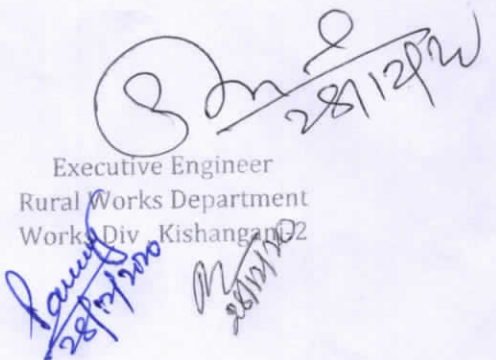 28/12/20
Executive Engineer
Rural Works Department
Works Div Kishanganj-2
28/12/2020
28/12/20